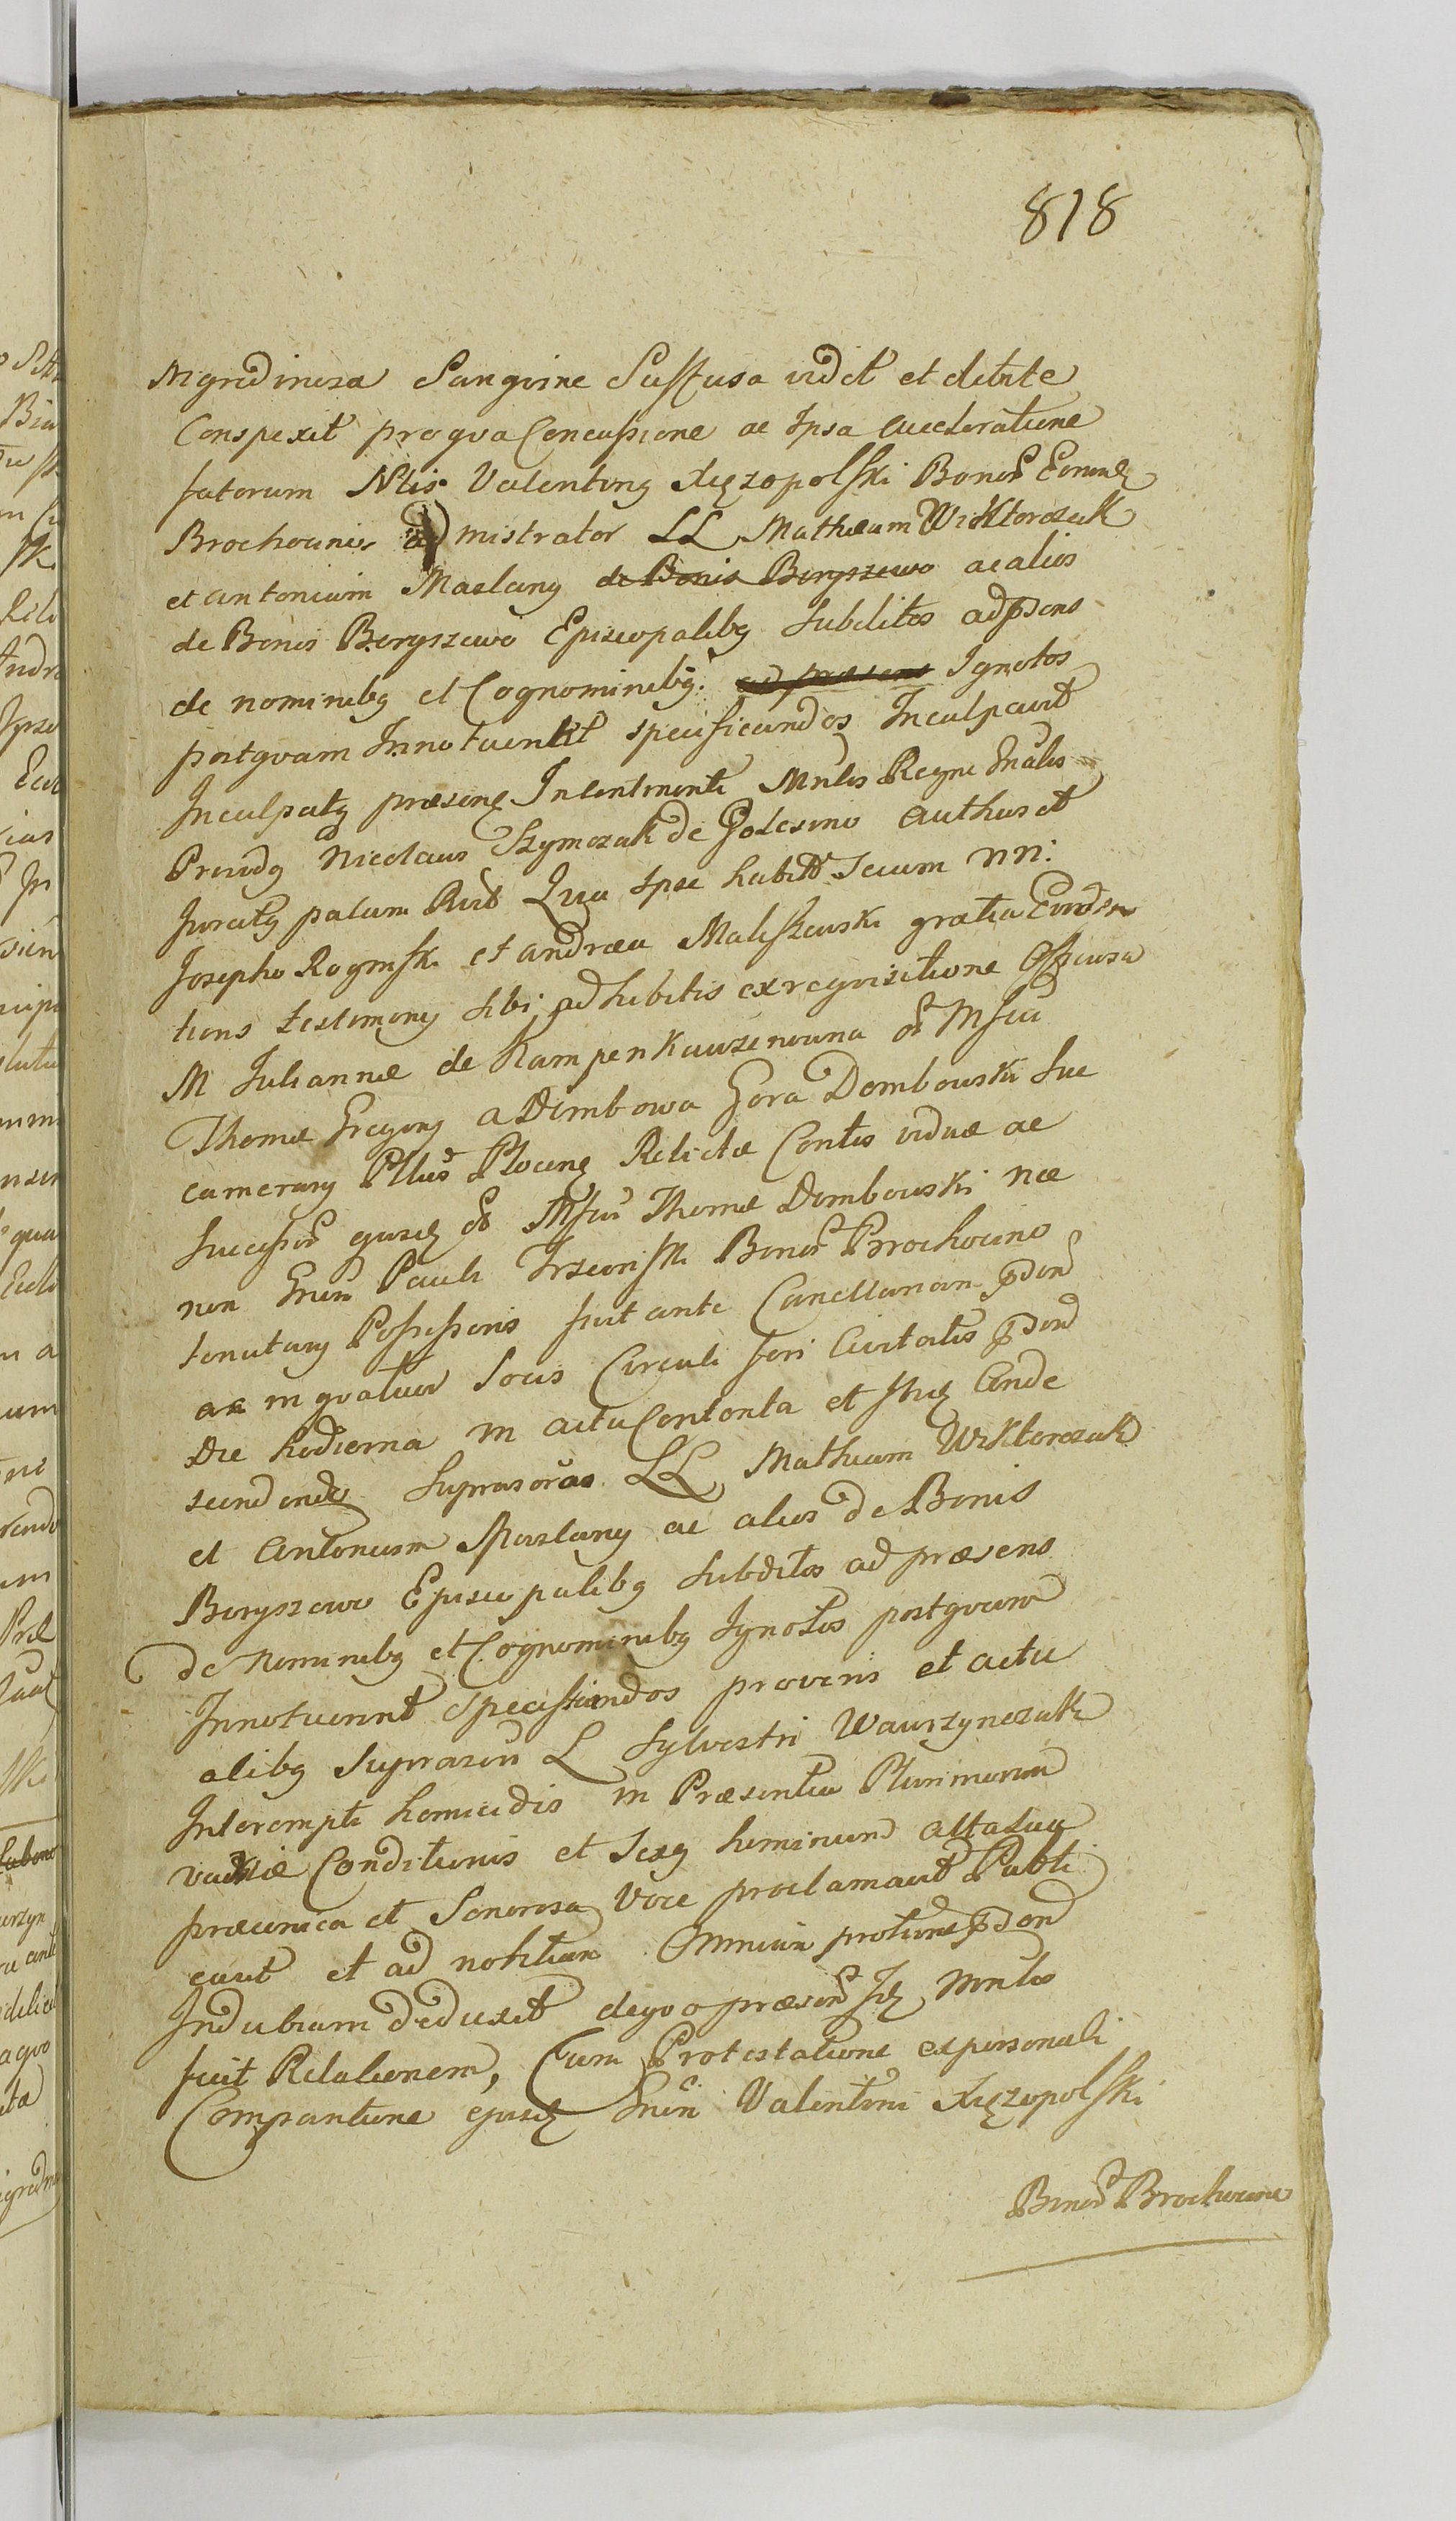 818
Nigredinosa Sanguine Suffusa vidit et debite
Conspexit pro qva Concussione ac Ipsa acceleratione
fatorum Nlis Valentinq Xięzopolski Bonor Eorund
Brochocino admistrator LL Mathæum Wiktorczak
et Antonium Maslany de Bonis Boryszewo ac alios
de Bonis Boryszewo Episcopalibq Subditos ad psens
de nominibq et Cognominibq. ad præsens Ignotos
postqvam Innotuerint specificandos Inculpavit
Inculpatq præsens Intentinente Mnlis Regni Gnalis
Providq Nicolaus Szymczak de Golesino Authus et
Juratq palam Rvit Qvia Ipse habitis secum NN:
Josepho Rogınski et Andræa Maliszewski gratia Evıden
tioris testimony sibi adhibitis ex reqvisitione Officiosa
M Julianne de Kampenkauzenowna o Mfici
Thomæ Gregory a Dombowa Gora Dombowski Suc
camerary Pltus Plocens Relictæ Contis viduæ ac
Successor ejusd o Mfici Thomæ Dombowski nec
non Gnen Pauli Bonor Brochocino
tenutary Possessoris fuit ante Cancellariam pdend
ac in qvatuor Locis Circuli fori Civitatis pdend
Die hodierna in actu Contenta et
scindendo Suprascras LL Mathæum Wiktorczak
et Antonium Maslany ac alios de Bonis
Boryszewo Episcopalibq Subditos ad præsens
de Nominibq et Cognominibq Ignotos postqvam
Innotuerint Specificandos pro veris et actu
alibq Suprascri L Sylvestri Wawrzynczak
Interempti homicidis in Præsentia Plurimorum
variæ Conditionis et Sexq hominum alta sua
præconica et Sonorosa Voce proclamavit Publi
cavit et ad notitiam Omnium protunc pdend
Indubiam deduxit de qvo præsen Jd Mnlis
fecit Relationem, Cum Protestatione ex personali
Comparitione ejusd Gnen Valentini Xięzopolski
Bonor Brochocino